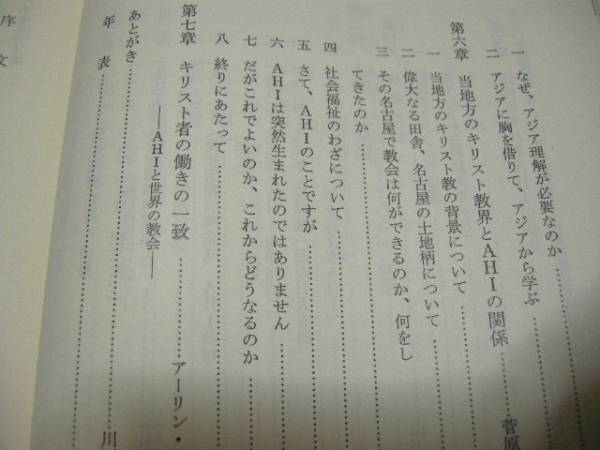 一 なぜ、アジア理解が必要なのか
二 アジアに胸を借りて、アジアから学ぶ
第六章 当地方のキリスト教界とAHIの関係 菅原
一 当地方のキリスト教の背景について
二 偉大なる田舎、名古屋の土地柄について
三 その名古屋で教会は何ができるのか、何をし
てきたのか
四 社会福祉のわざについて
五 さて、AHIのことですが
六 AHIは突然生まれたのではありません
七 だがこれでよいのか、これからどうなるのか
八 終りにあたって
第七章 キリスト者の働きの一致 アーリン・
──AHIと世界の教会──
あとがき 川
年表
序文